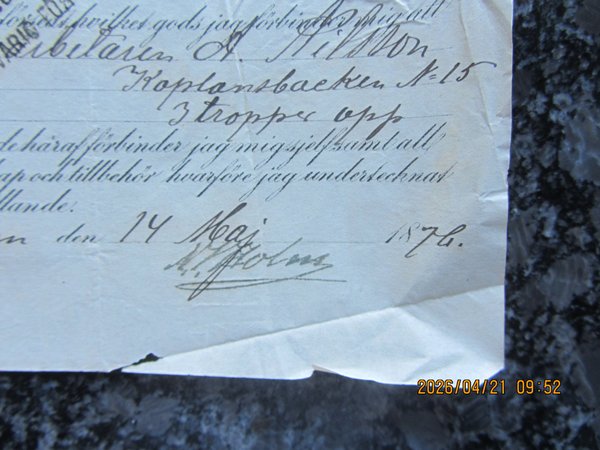 hvilket gods jag förbinder mig att
Arbetaren A. Nilsson
Koplansbacken No 15
3 tropper opp
de häraf förbinder jag mig sjelf samt att
ap och tillbehör hvarföre jag undertecknat
llande.
den 14 Maj 1876.
Holm
2026/04/21 09:52